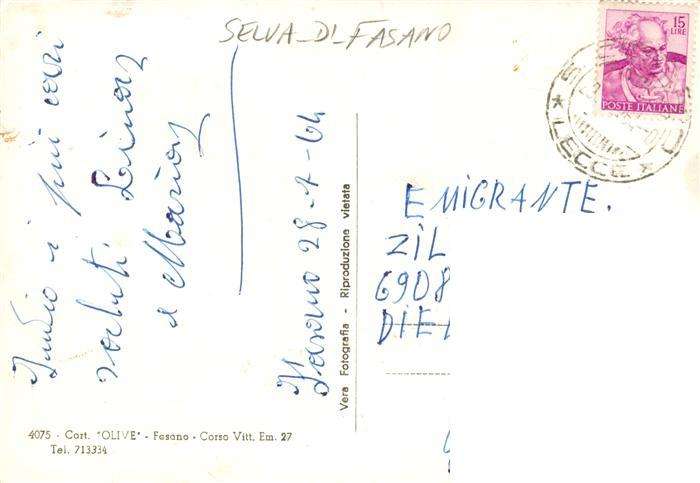 SELVA-DI-FASANO
15
LIRE
POSTE ITALIANE
LECCE
Invio i più cari
saluti.
e Maria
Fasano 28-1-64
Vera Fotografia - Riproduzione vietata
EMIGRANTE.
ZIL
6908
DIE
4075 - Cart. "OLIVE" - Fasano - Corso Vitt. Em. 27
Tel. 713334